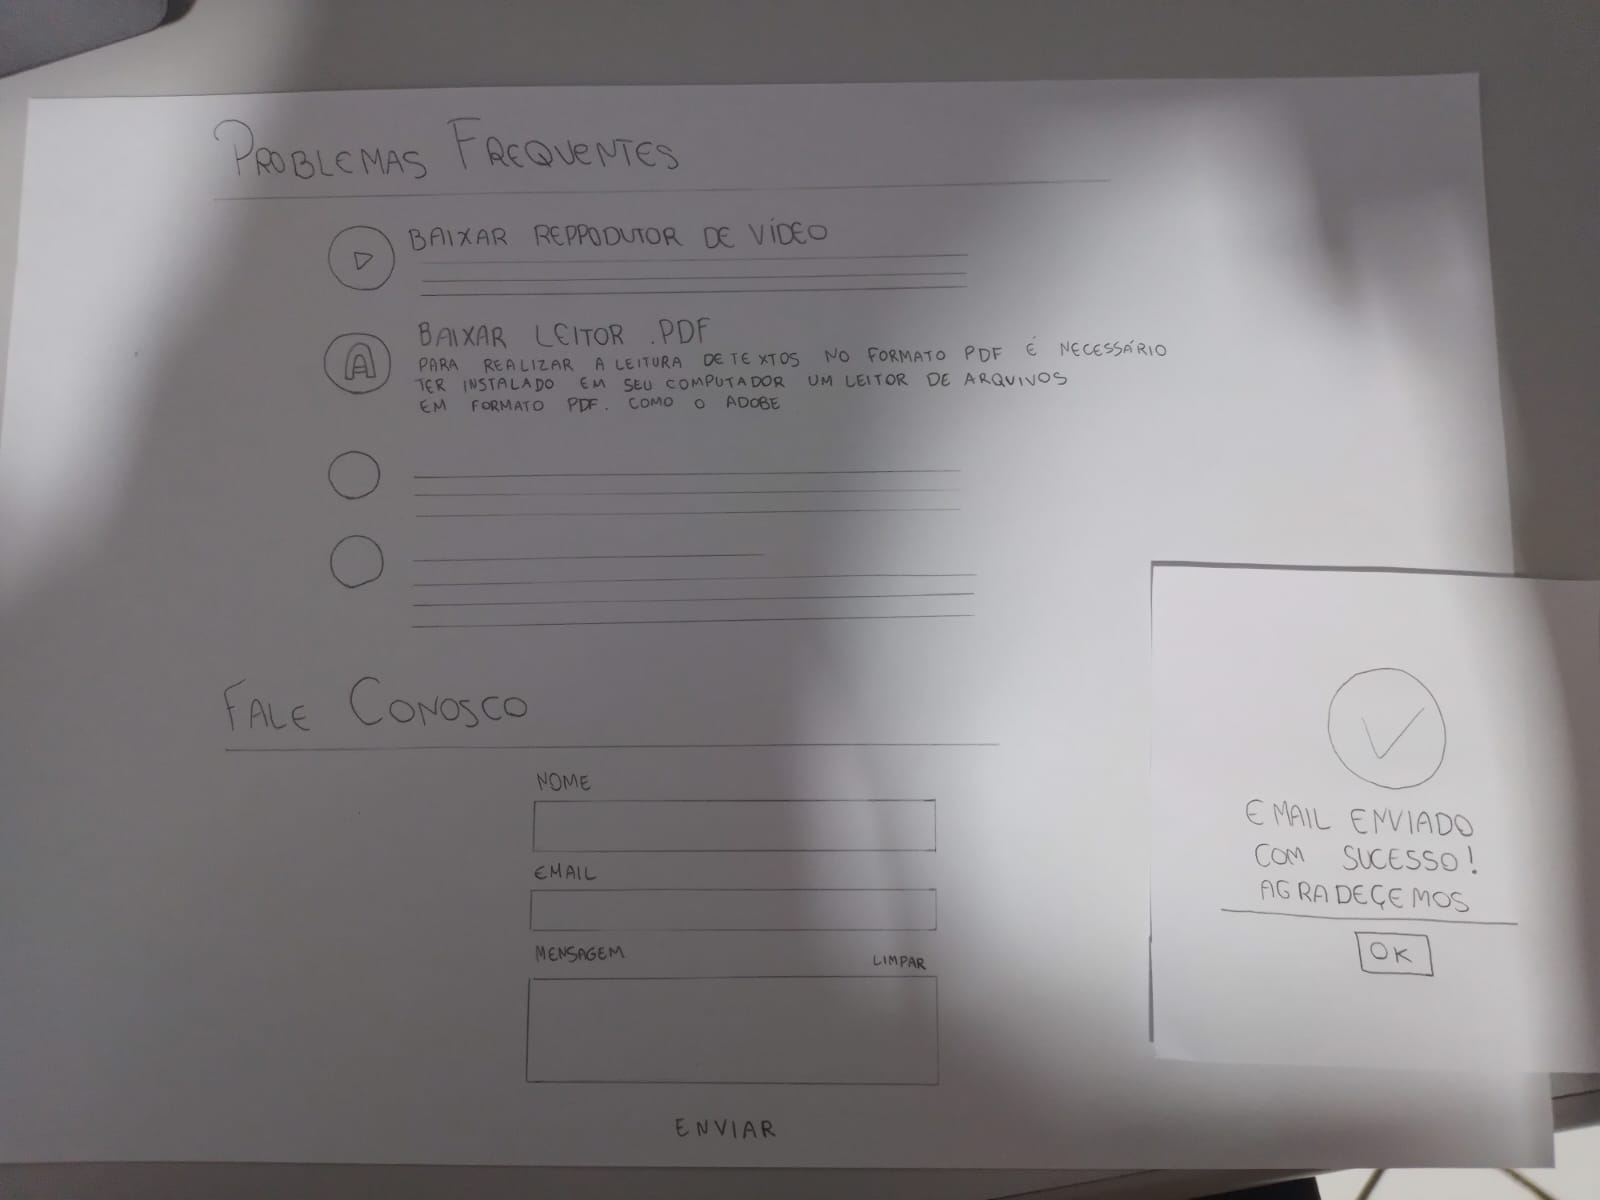 PROBLEMAS FREQUENTES
BAIXAR REPPODUTOR DE VÍDEO
A
BAIXAR LEITOR .PDF
PARA REALIZAR A LEITURA DE TEXTOS NO FORMATO PDF É NECESSÁRIO
TER INSTALADO EM SEU COMPUTADOR UM LEITOR DE ARQUIVOS
EM FORMATO PDF. COMO O ADOBE
FALE CONOSCO
NOME
EMAIL
MENSAGEM LIMPAR
ENVIAR
EMAIL ENVIADO
COM SUCESSO!
AGRADEÇEMOS
OK